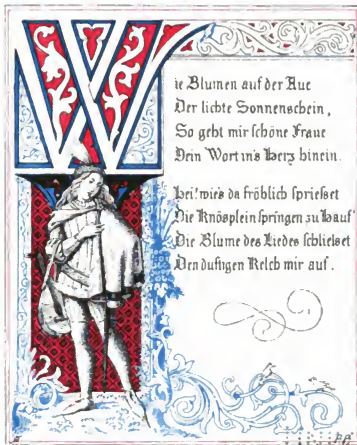 Wie Blumen auf der Aue
Der lichte Sonnenschein,
So geht mir schöne Fraue
Dein Wort in's Herz hinein.
Hei! wie's da fröhlich sprießet
Die Knösplein springen zu Hauf
Die Blume des Liedes schließet
Den duftigen Kelch mir auf.